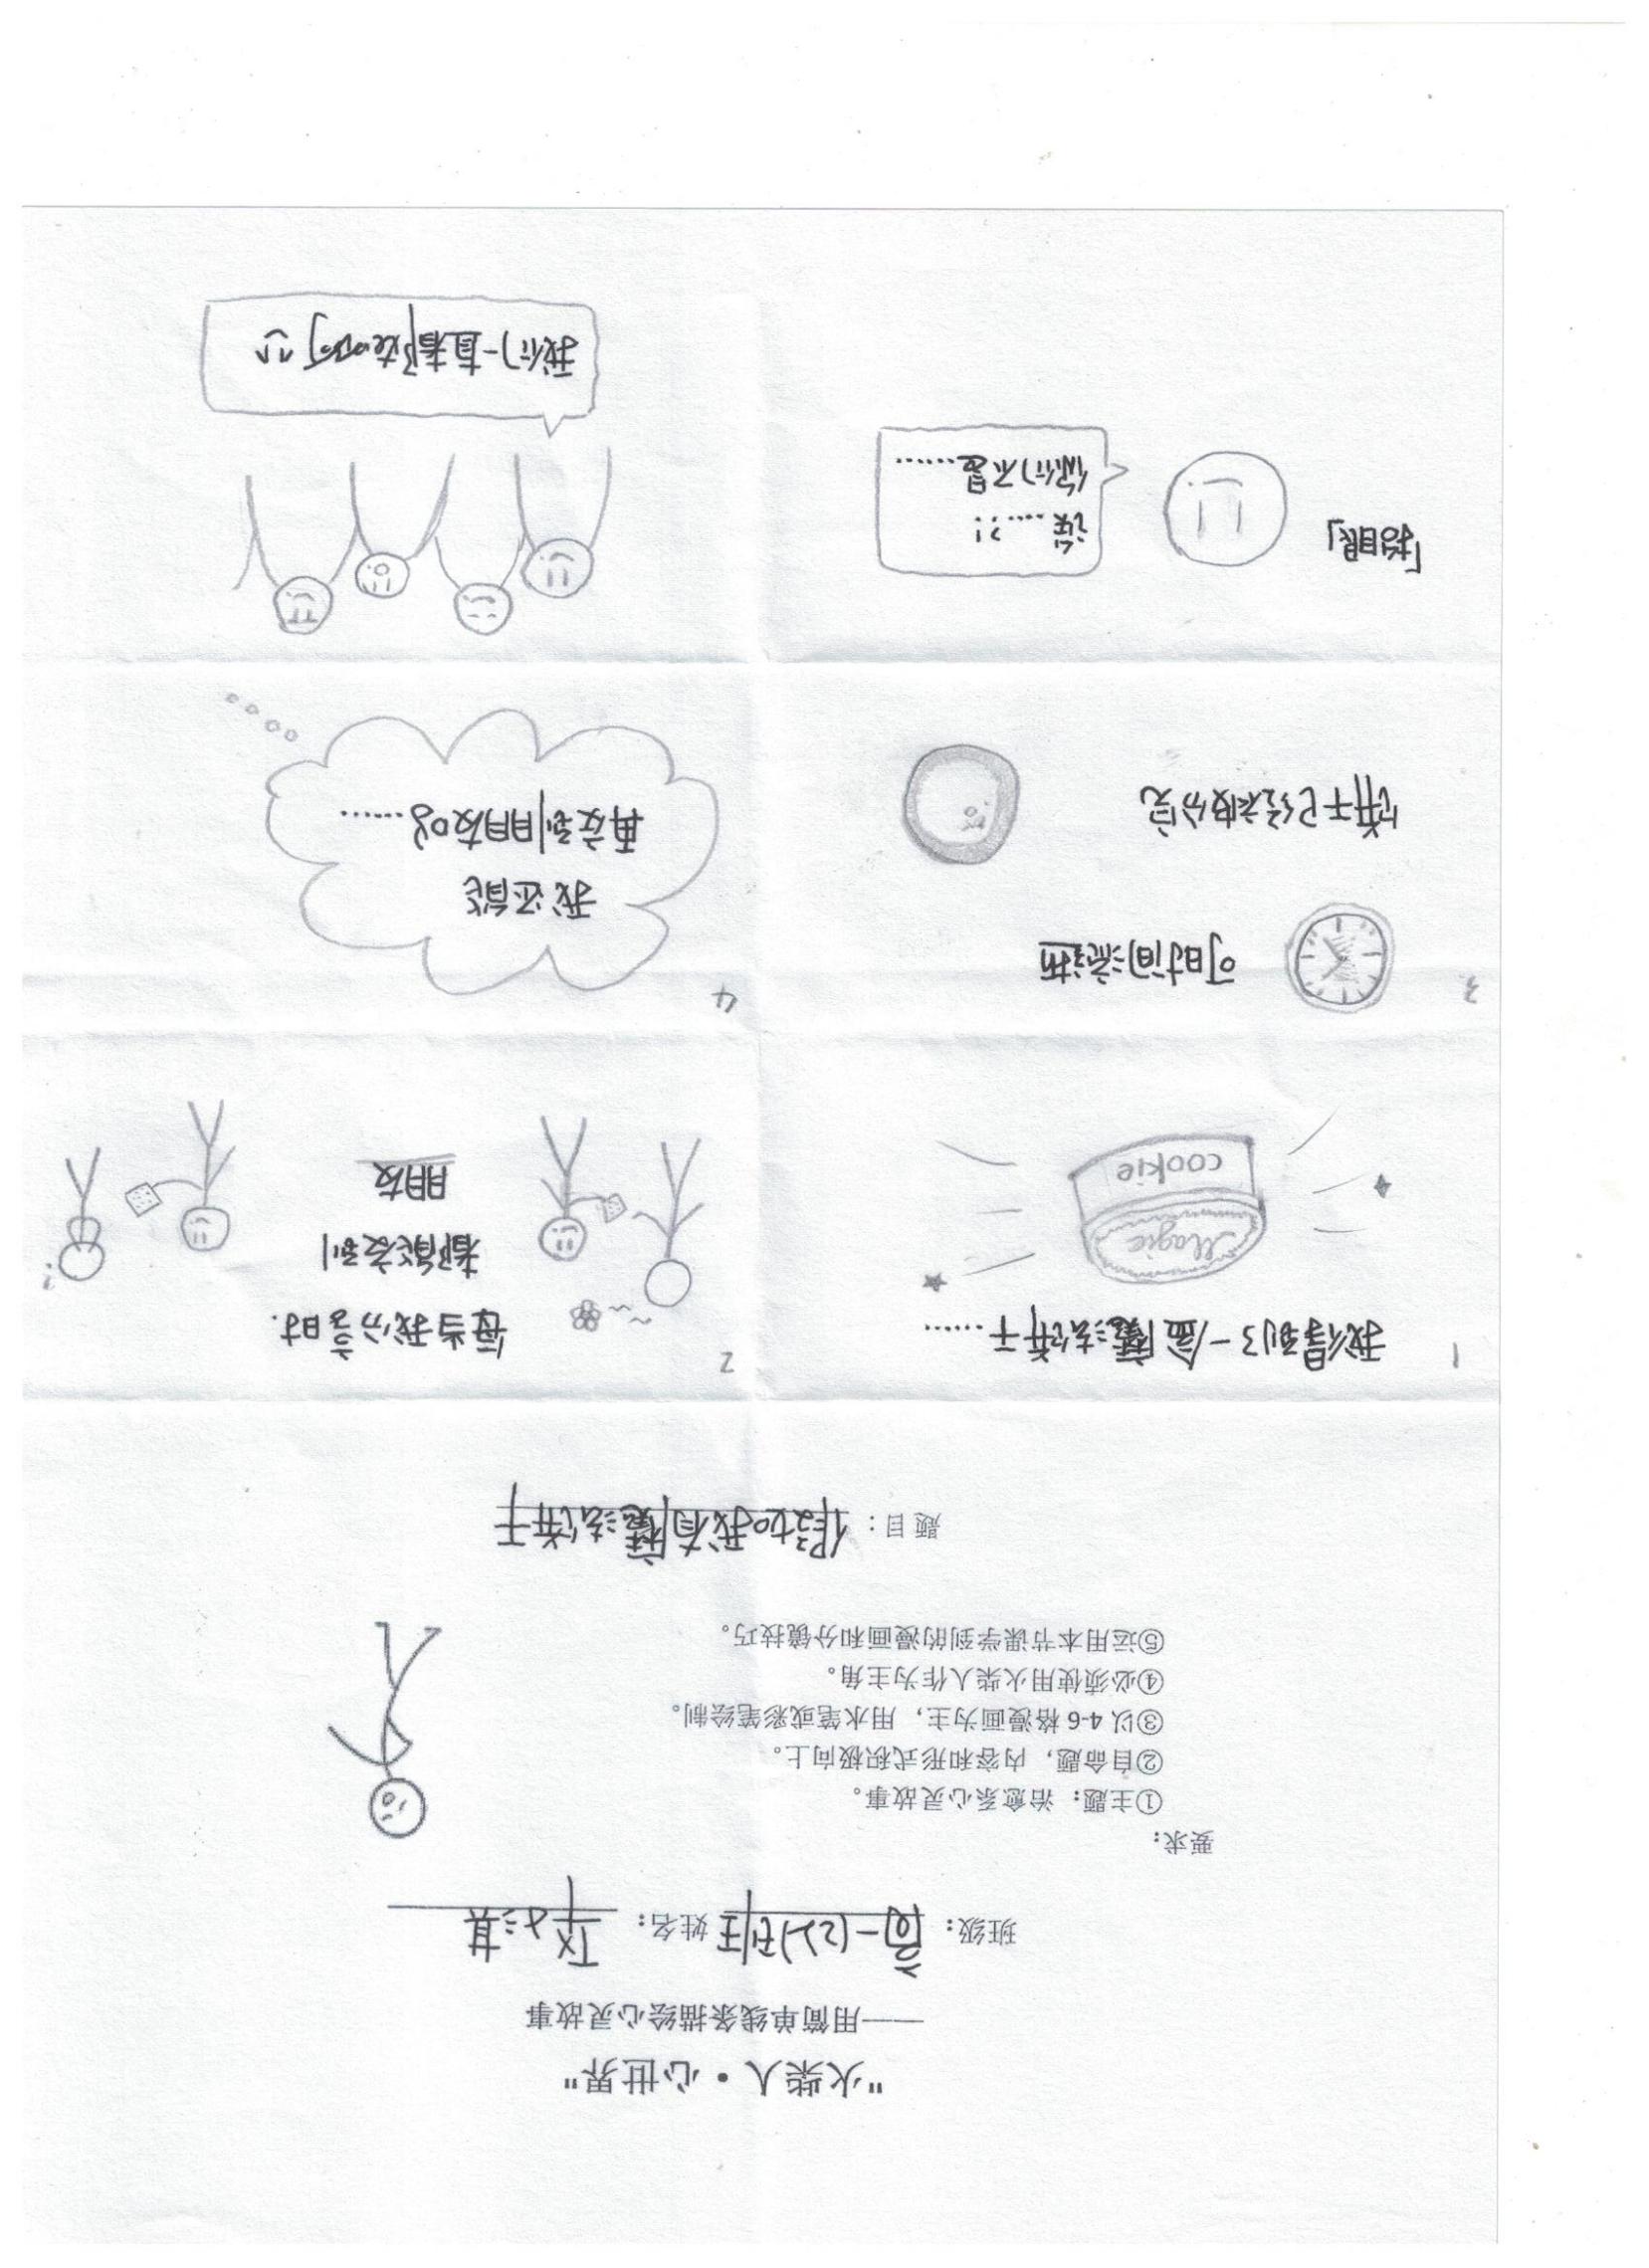 "火柴人·心世界"
——用简单线条描绘心灵故事
班级：高一 班 姓名：
要求：
①主题：治愈系心灵故事。
②自命题，内容和形式积极向上。
③以 4-6 格漫画为主，用水笔或彩笔绘制。
④必须使用火柴人作为主角。
⑤运用本节课学到的漫画和分镜技巧。
题目：假如我有魔法饼干
1
我得到了一盒魔法饼干……
Magic
cookie
2
每当我分享时.
都能交到
朋友
?
3
可时间流逝
饼干已经被分完
4
我还能
再交到朋友吗……
「抬眼」
诶……?!
你们不是……
我们一直都在啊